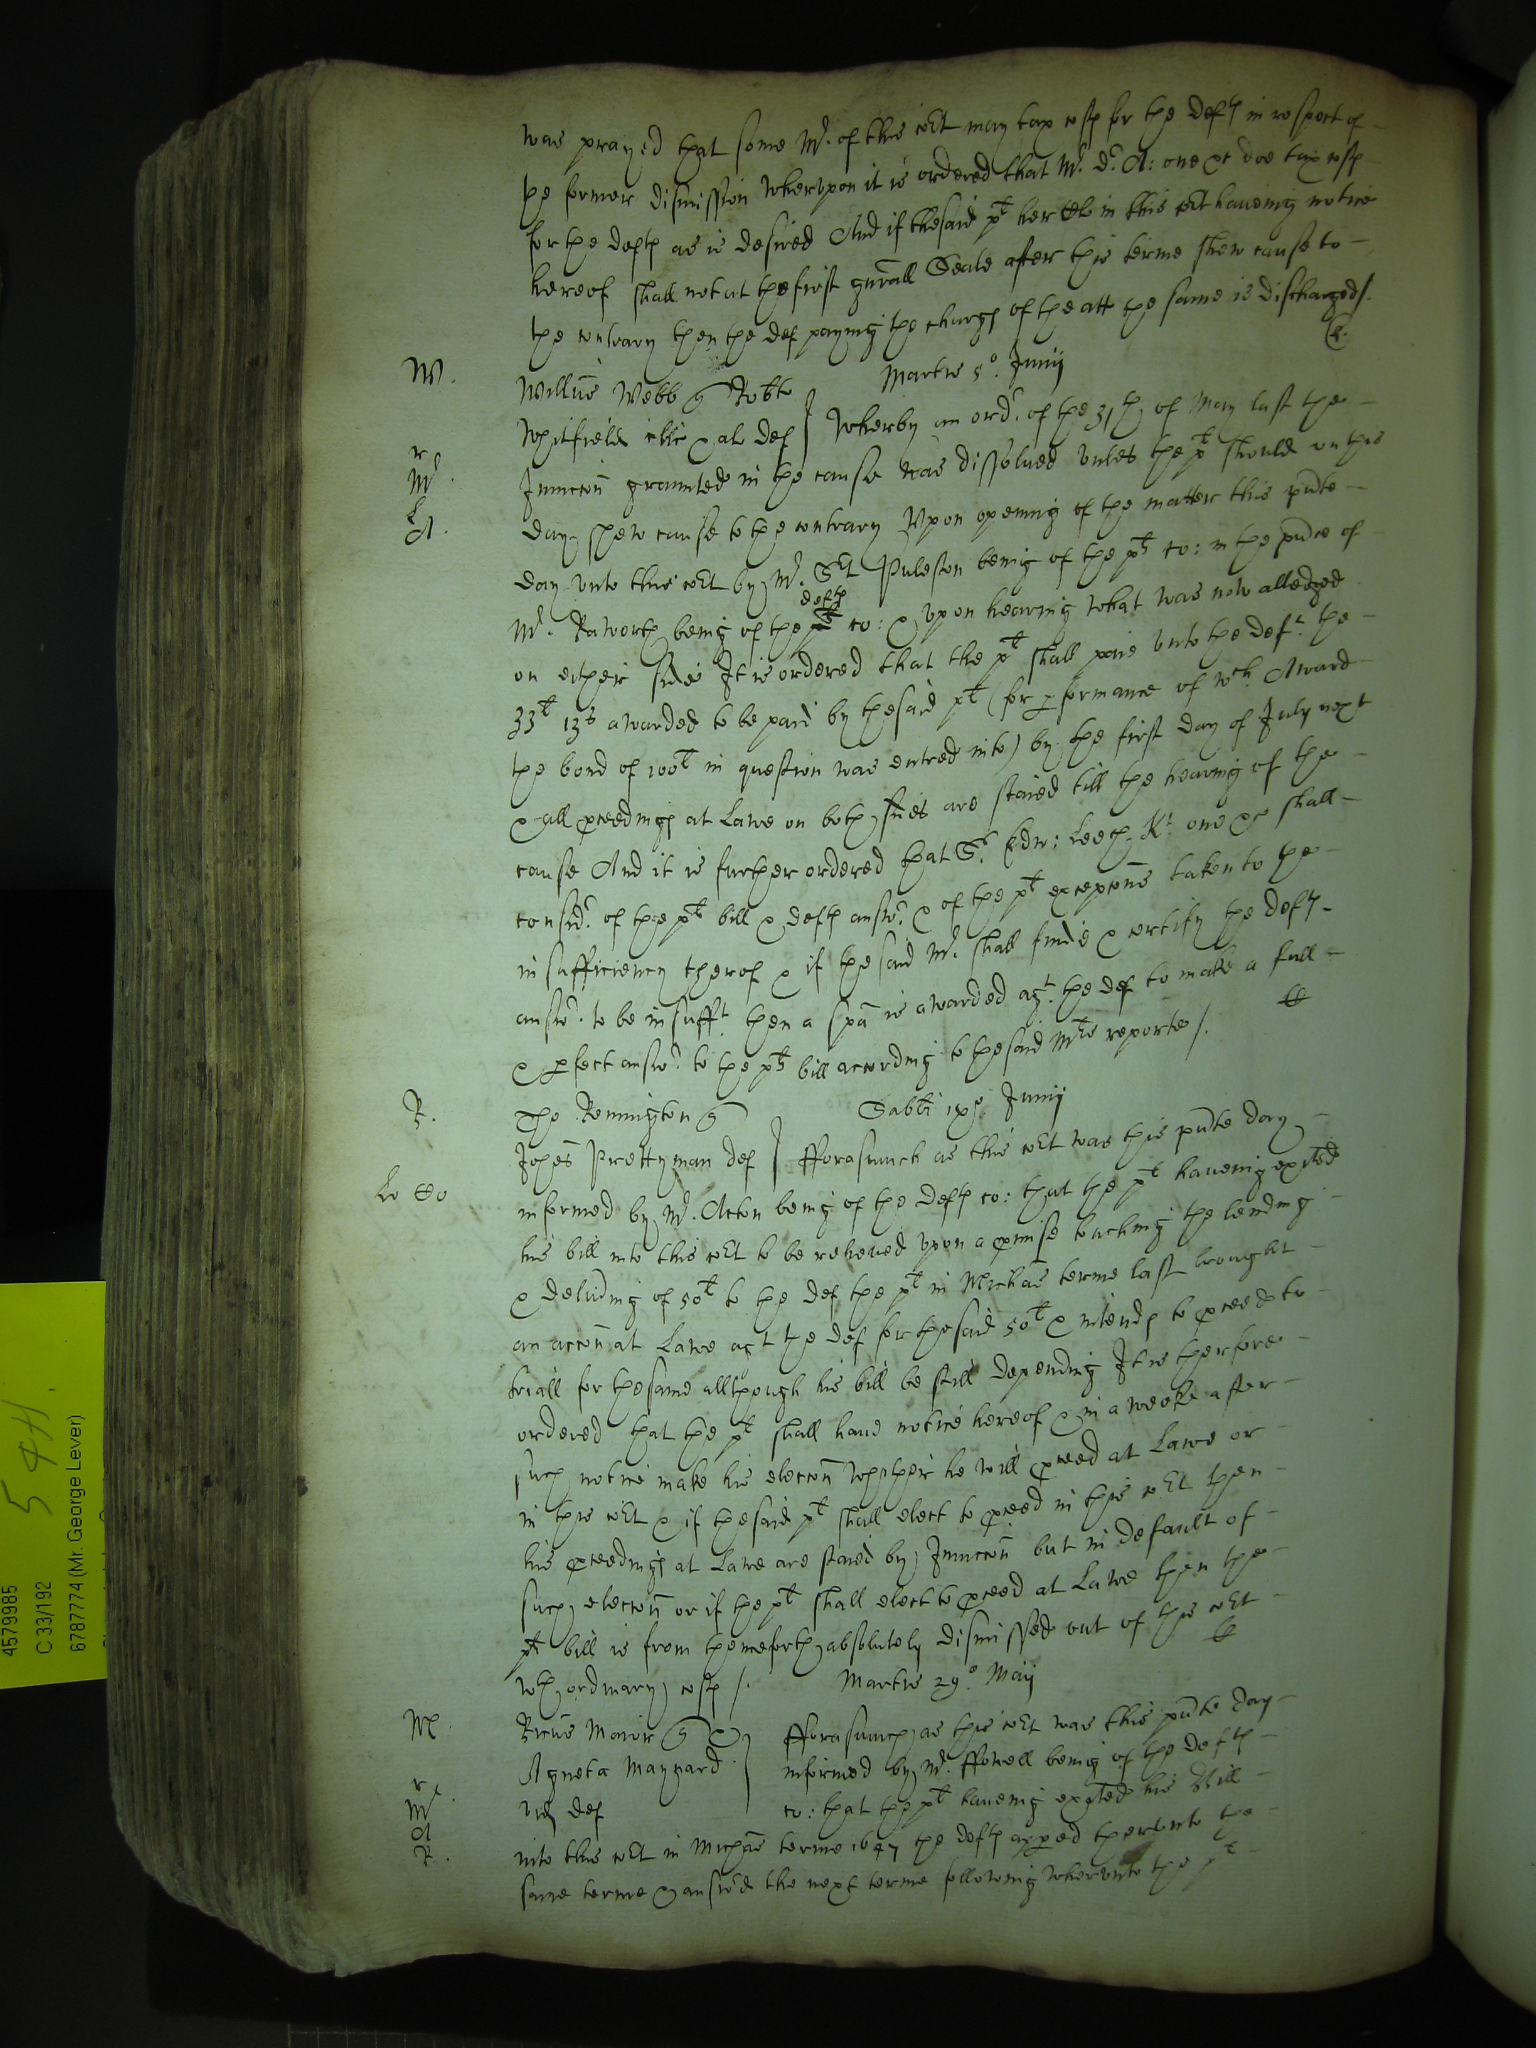 was prayed that some Mr. of this Cort may tax costs for the Defts in respect of
the former dismission Wherupon it is ordered that Mr. Dr. A: one &c doe tax costs
for the Defts as is desired And if the said plt her Clk in this Cort haveing notice
hereof shall not at the first gnrall Seale after this terme shew cause to
the contrary then the def paying the charges of the att the same is discharged/.
W. Martis 5o. Junij
Willus Webb q Robto
Whitfield & al def } Wherby an ordr. of the 31th of May last the
Iniunccon graunted in the cause was dissolved unles the plt should on this
day shew cause to the contrary Upon opening of the matter this pnte
day unto this Cort by Mr. Srt Puleston being of the plts co: in the pnce of
defts
Mr. Raworth being of the co: & upon hearing what was now alledged
on either sides It is ordered that the plt shall paie unto the deft. the
33l 13s awarded to be paid by the said plt (for pformance of wch Award
the bond of 100l in question was entred into) by the first day of July next
& all pceedings at Lawe on both sides are staied till the hearing of the
cause And it is further ordered that Sr. Edw: Leech Kt. one &c shall
considr. of the plts bill & defts answr. & of the plts excepcons taken to the
insufficiency therof & if the said Mr. shall finde & certify the defts
answr. to be insufft. then a spa is awarded agt. the def to make a full
& pfect answr. to the plts bill according to the said Mrs reporte/.
R. Tho. Remington q Sabti Junij
Johes Prettyman def } fforasmuch as this Cort was this pnte day
informed by Mr. Acton being of the defts co: that the plt haveing exited
his bill into this Cort to be releived upon a pmise touching the lending
& deliuing of 50l to the def the plt in Michas terme last brought
an accon at Lawe agt the def for the said 50l & intends to pceede to
triall for the same allthough his bill be still depending It is therfore
ordered that the plt shall have notice hereof & in a weeke after
such notice make his eleccon whether he will pceed at Lawe or
in this Cort & if the said plt shall elect to pceed in this Cort then
his pceedings at Lawe are staied by Iniunccon but in default of
such eleccon or if the plt shall elect to pceed at Lawe then the
plts bill is from thenceforth absolutely dismissed out of this Cort
wth ordinary costs /. Martis 29o. Maij
M. Ricus Maior q } fforasmuch as this Cort was this pnte day
Agneta Maynard informed by Mr. ffowell being of the defts
vid def co: that the plt haveing exited his Bill
into this Cort in Michas terme 1647 the defts apped therunto the
same terme & answd the next terme following wherunto the plt
4579985
C 33/192
6787774 (Mr. George Lever)